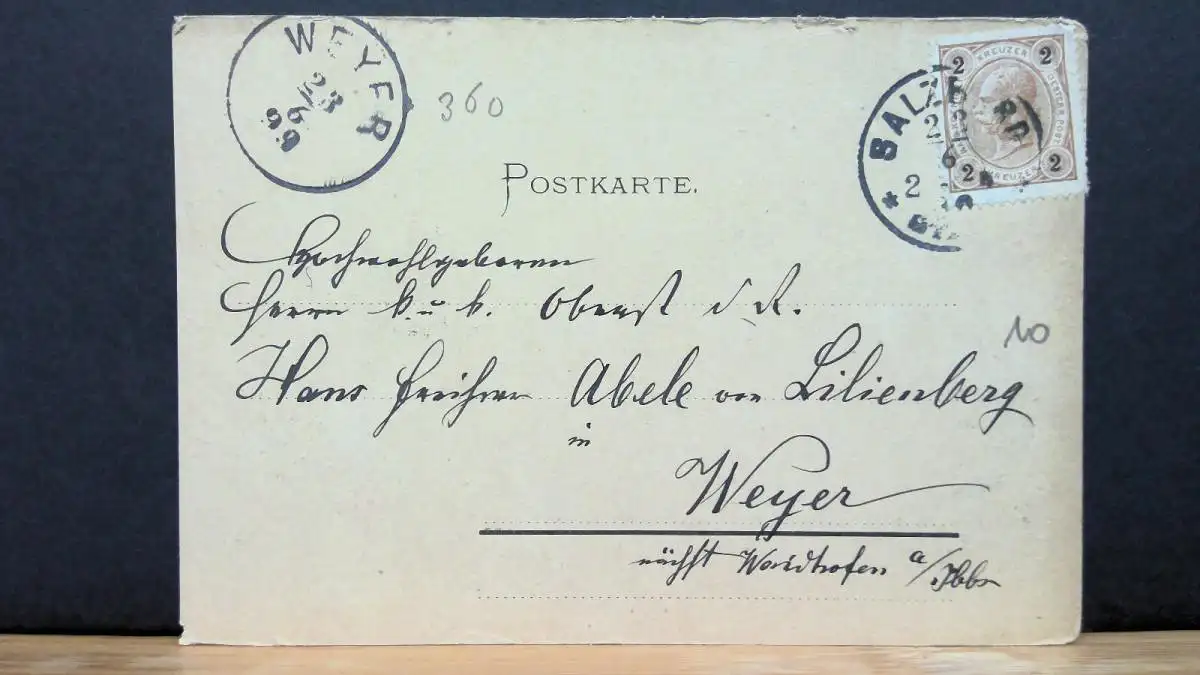 WEYER
23/6
99
360
KREUZER
2 2
2 2
KREUZER
BALZ RD
2
6
2
POSTKARTE.
Hochwohlgeboren
Herrn k. u. k. Oberst d. R.
Hans Freiherr Abele von Lilienberg
10
in
Weyer
nächst Waidhofen a/Ybbs